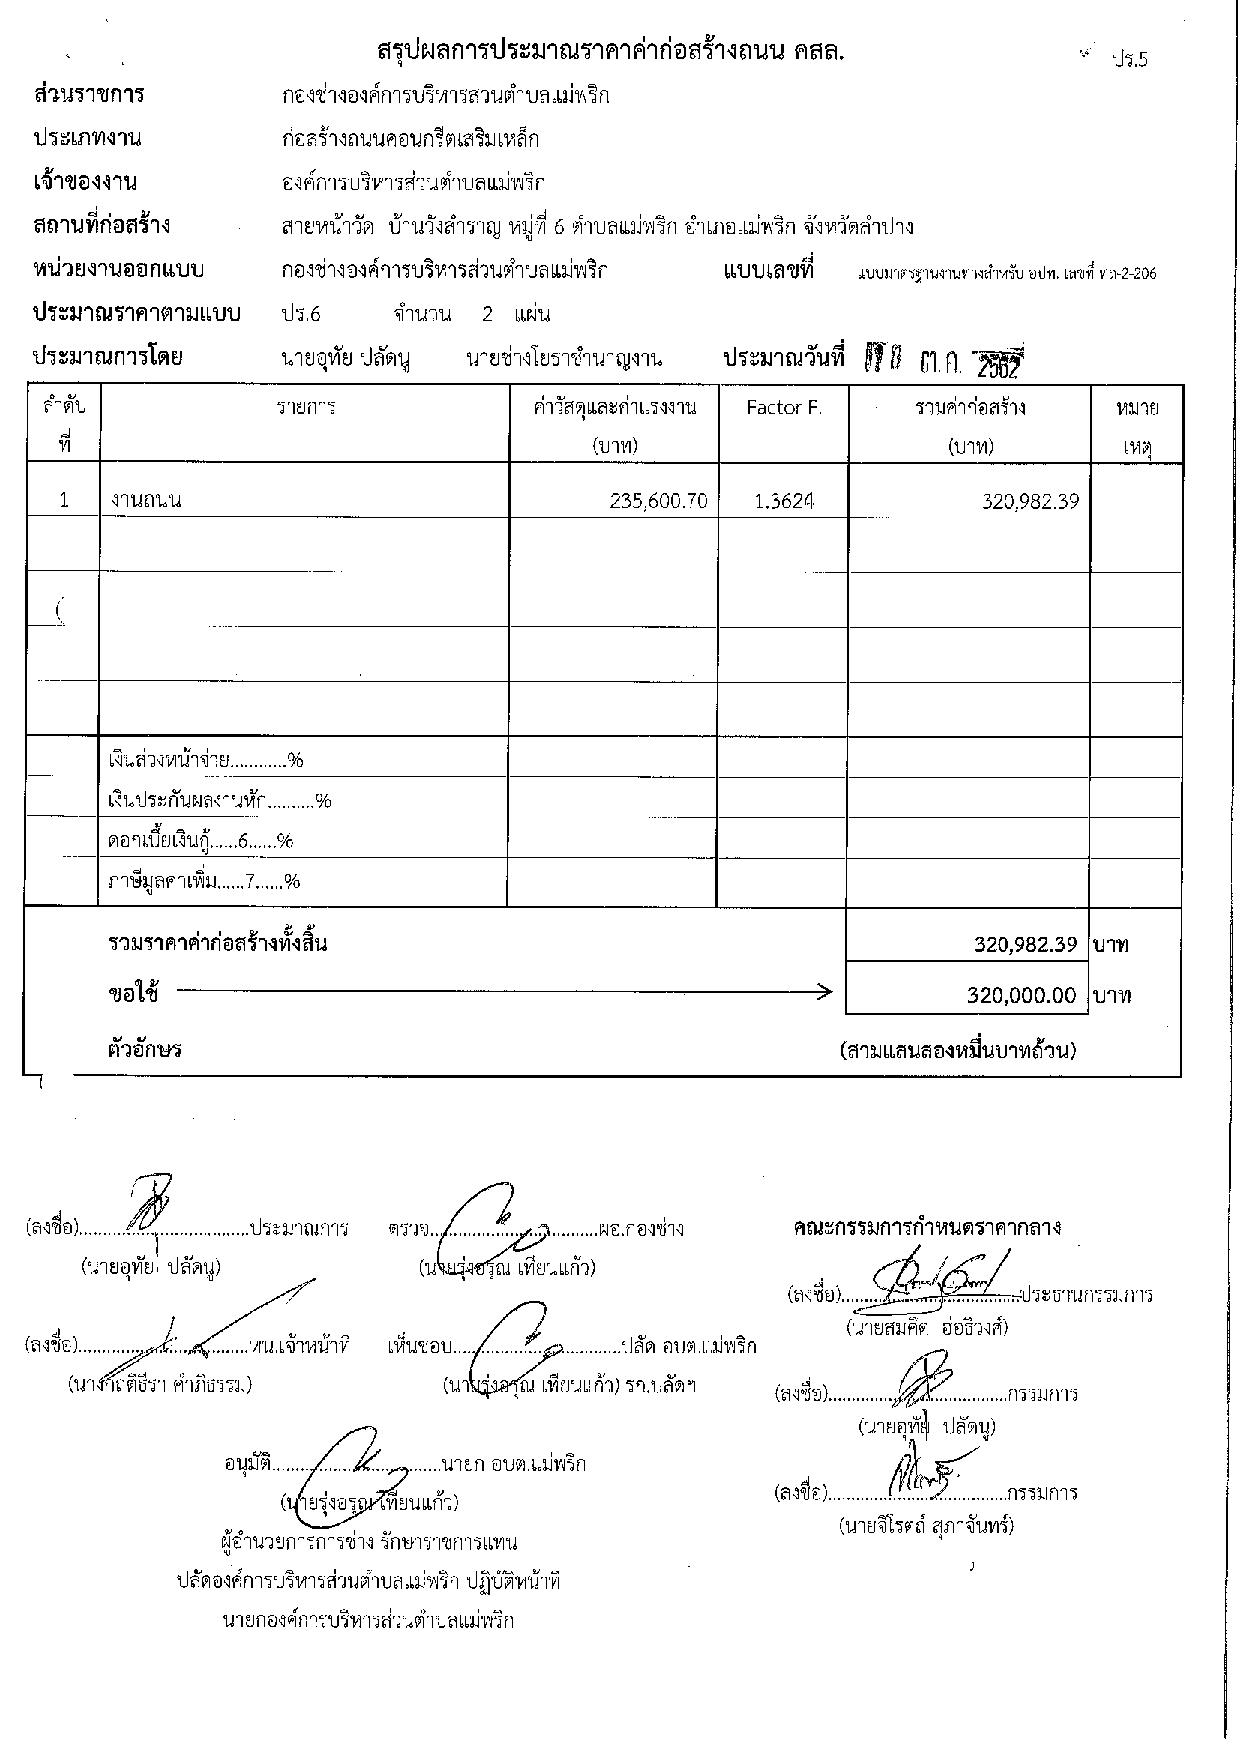 สรุปผลการประมาณราคาค่าก่อสร้างถนน คสล.
ปร.5
ส่วนราชการ กองช่างองค์การบริหารส่วนตำบลแม่พริก
ประเภทงาน ก่อสร้างถนนคอนกรีตเสริมเหล็ก
เจ้าของงาน องค์การบริหารส่วนตำบลแม่พริก
สถานที่ก่อสร้าง สายหน้าวัด บ้านวังสำราญ หมู่ที่ 6 ตำบลแม่พริก อำเภอแม่พริก จังหวัดลำปาง
หน่วยงานออกแบบ กองช่างองค์การบริหารส่วนตำบลแม่พริก แบบเลขที่ แบบมาตรฐานงานทางสำหรับ อปท. เลขที่ ทถ-2-206
ประมาณราคาตามแบบ ปร.6 จำนวน 2 แผ่น
ประมาณการโดย นายอุทัย ปลัดนู นายช่างโยธาชำนาญงาน ประมาณวันที่ ต.ค. 2562
ลำดับ รายการ ค่าวัสดุและค่าแรงงาน Factor F. รวมค่าก่อสร้าง หมาย
ที่ (บาท) (บาท) เหตุ
1 งานถนน 235,600.70 1.3624 320,982.39
เงินล่วงหน้าจ่าย...........%
เงินประกันผลงานหัก.........%
ดอกเบี้ยเงินกู้.....6......%
ภาษีมูลค่าเพิ่ม.....7......%
รวมราคาค่าก่อสร้างทั้งสิ้น 320,982.39 บาท
ขอใช้ 320,000.00 บาท
ตัวอักษร (สามแสนสองหมื่นบาทถ้วน)
(ลงชื่อ)..........ประมาณการ ตรวจ..........ผอ.กองช่าง คณะกรรมการกำหนดราคากลาง
(นายอุทัย ปลัดนู) (นายรุ่งอรุณ เทียนแก้ว)
(ลงชื่อ)..........ประธานกรรมการ
(นายสมคิด อ่อธิวงศ์)
(ลงชื่อ)..........หน.เจ้าหน้าที่ เห็นชอบ..........ปลัด อบต.แม่พริก
(นายรุ่งอรุณ เทียนแก้ว) รก.ปลัดฯ
(ลงชื่อ)..........กรรมการ
(นายอุทัย ปลัดนู)
อนุมัติ..........นายก อบต.แม่พริก
(นายรุ่งอรุณ เทียนแก้ว)
(ลงชื่อ)..........กรรมการ
(นายจิโรตถ์ สุภาจันทร์)
ผู้อำนวยการกองช่าง รักษาราชการแทน
ปลัดองค์การบริหารส่วนตำบลแม่พริก ปฏิบัติหน้าที่
นายกองค์การบริหารส่วนตำบลแม่พริก